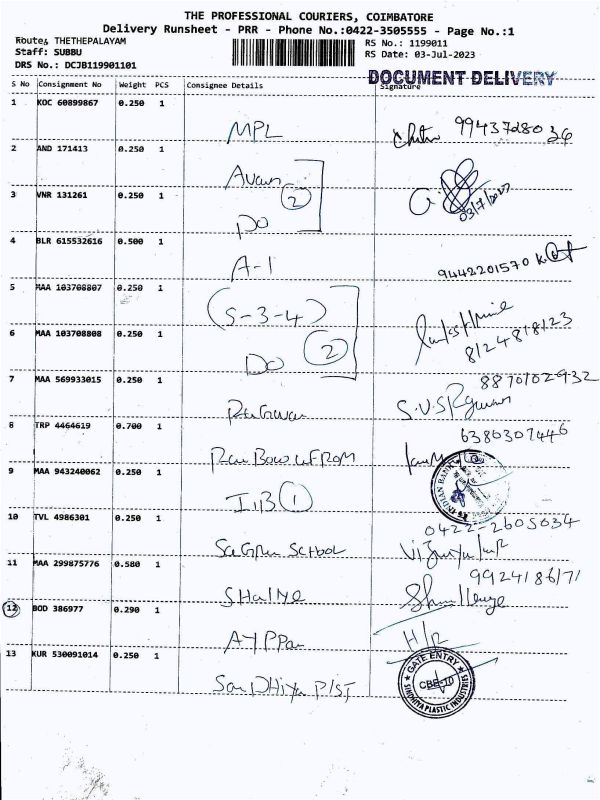 THE PROFESSIONAL COURIERS, COIMBATORE
Delivery Runsheet - PRR - Phone No.:0422-3505555 - Page No.:1
Route: THETHEPALAYAM
RS No.: 1199011
Staff: SUBBU
RS Date: 03-Jul-2023
DRS No.: DCJB119901101
DOCUMENT DELIVERY
S No Consignment No Weight PCS Consignee Details Signature
1 KOC 60899867 0.250 1
MPL 9943728036
2 AND 171413 0.250 1
3 VNR 131261 0.250 1
2
03/7/2023
DO
4 BLR 615532616 0.500 1
A-1 9442201570
5 MAA 103708807 0.250 1
(S-3-4)
6 MAA 103708808 0.250 1
8124818123
DO 2
7 MAA 569933015 0.250 1
8870102932
8 TRP 4464619 0.700 1
6380307446
9 MAA 943240062 0.250 1
I.B 1 INDIAN BANK
10 TVL 4986301 0.250 1
0422-2605034
SCHOOL
11 MAA 299875776 0.580 1
9924186171
12 BOD 386977 0.290 1
H/R
13 KUR 530091014 0.250 1
GATE ENTRY
CBE-10
SINDHIYA PLASTIC INDUSTRIES